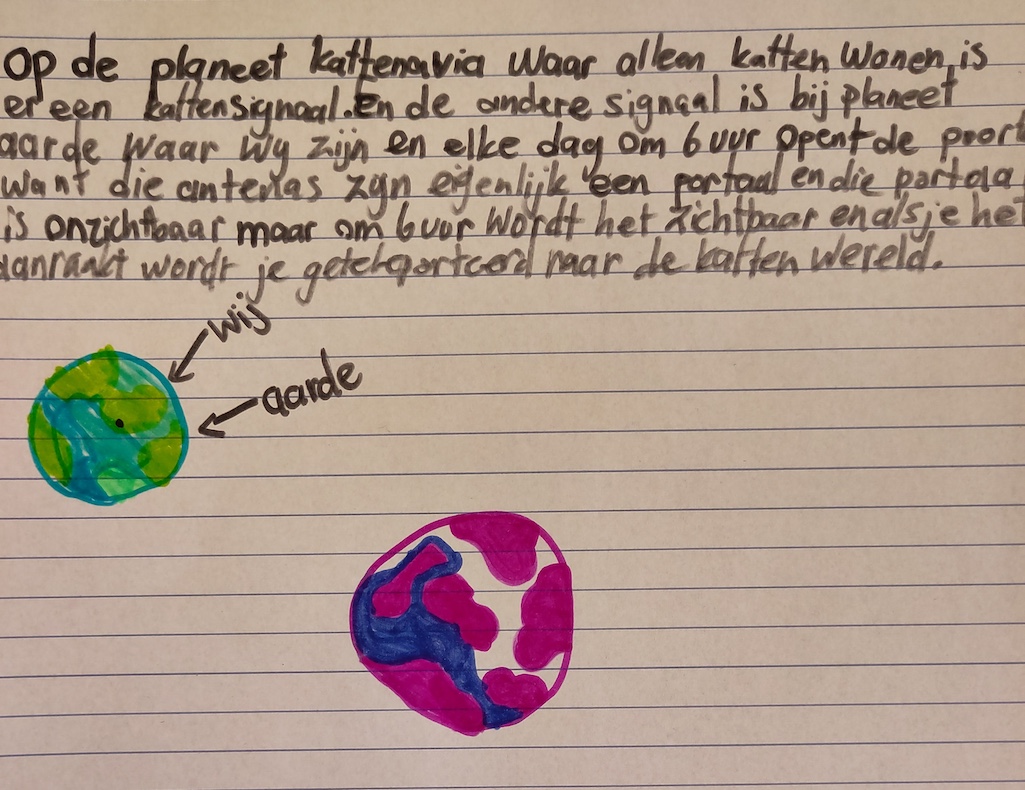 op de planeet kattenavia waar alleen katten wonen, is
er een kattensignaal. En de andere signaal is bij planeet
aarde waar wy zijn en elke dag om 6 uur opent de poort
want die antennas zyn eigenlijk een portaal en die portaa
is onzichtbaar maar om 6 uur wordt het zichtbaar en als je het
aanraakt wordt je geteleporteerd naar de katten wereld.
wij
aarde